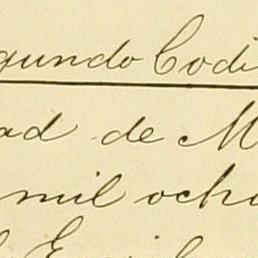 gundo Codi
ad de M
mil ocho